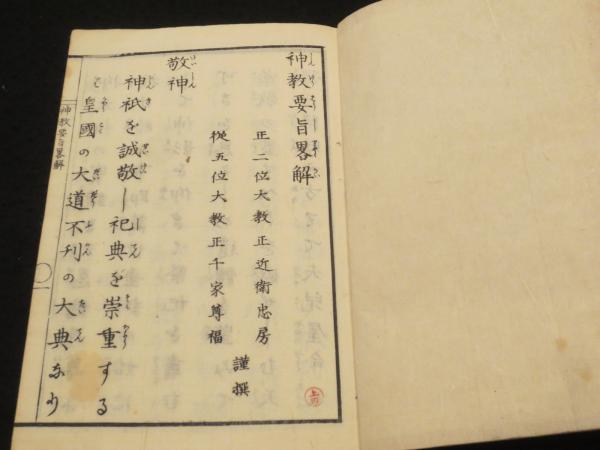 神教要旨畧解
正二位大教正近衛忠房
從五位大教正千家尊福
謹撰
敬神
神祇を誠敬し祀典を崇重する
ハ皇國の大道不刊の大典なり
神教要旨畧解